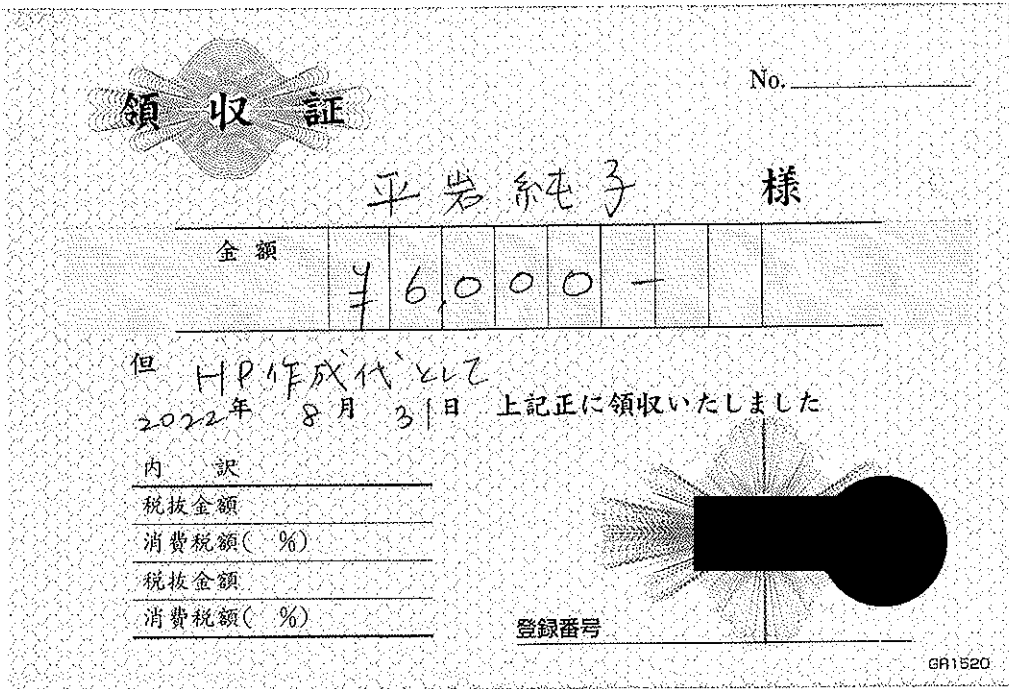 領収証
No.
平岩純子 様
金額 ¥6,000-
但 HP作成代として
2022年 8月 31日 上記正に領収いたしました
内 訳
税抜金額
消費税額( %)
税抜金額
消費税額( %)
登録番号
GR1520